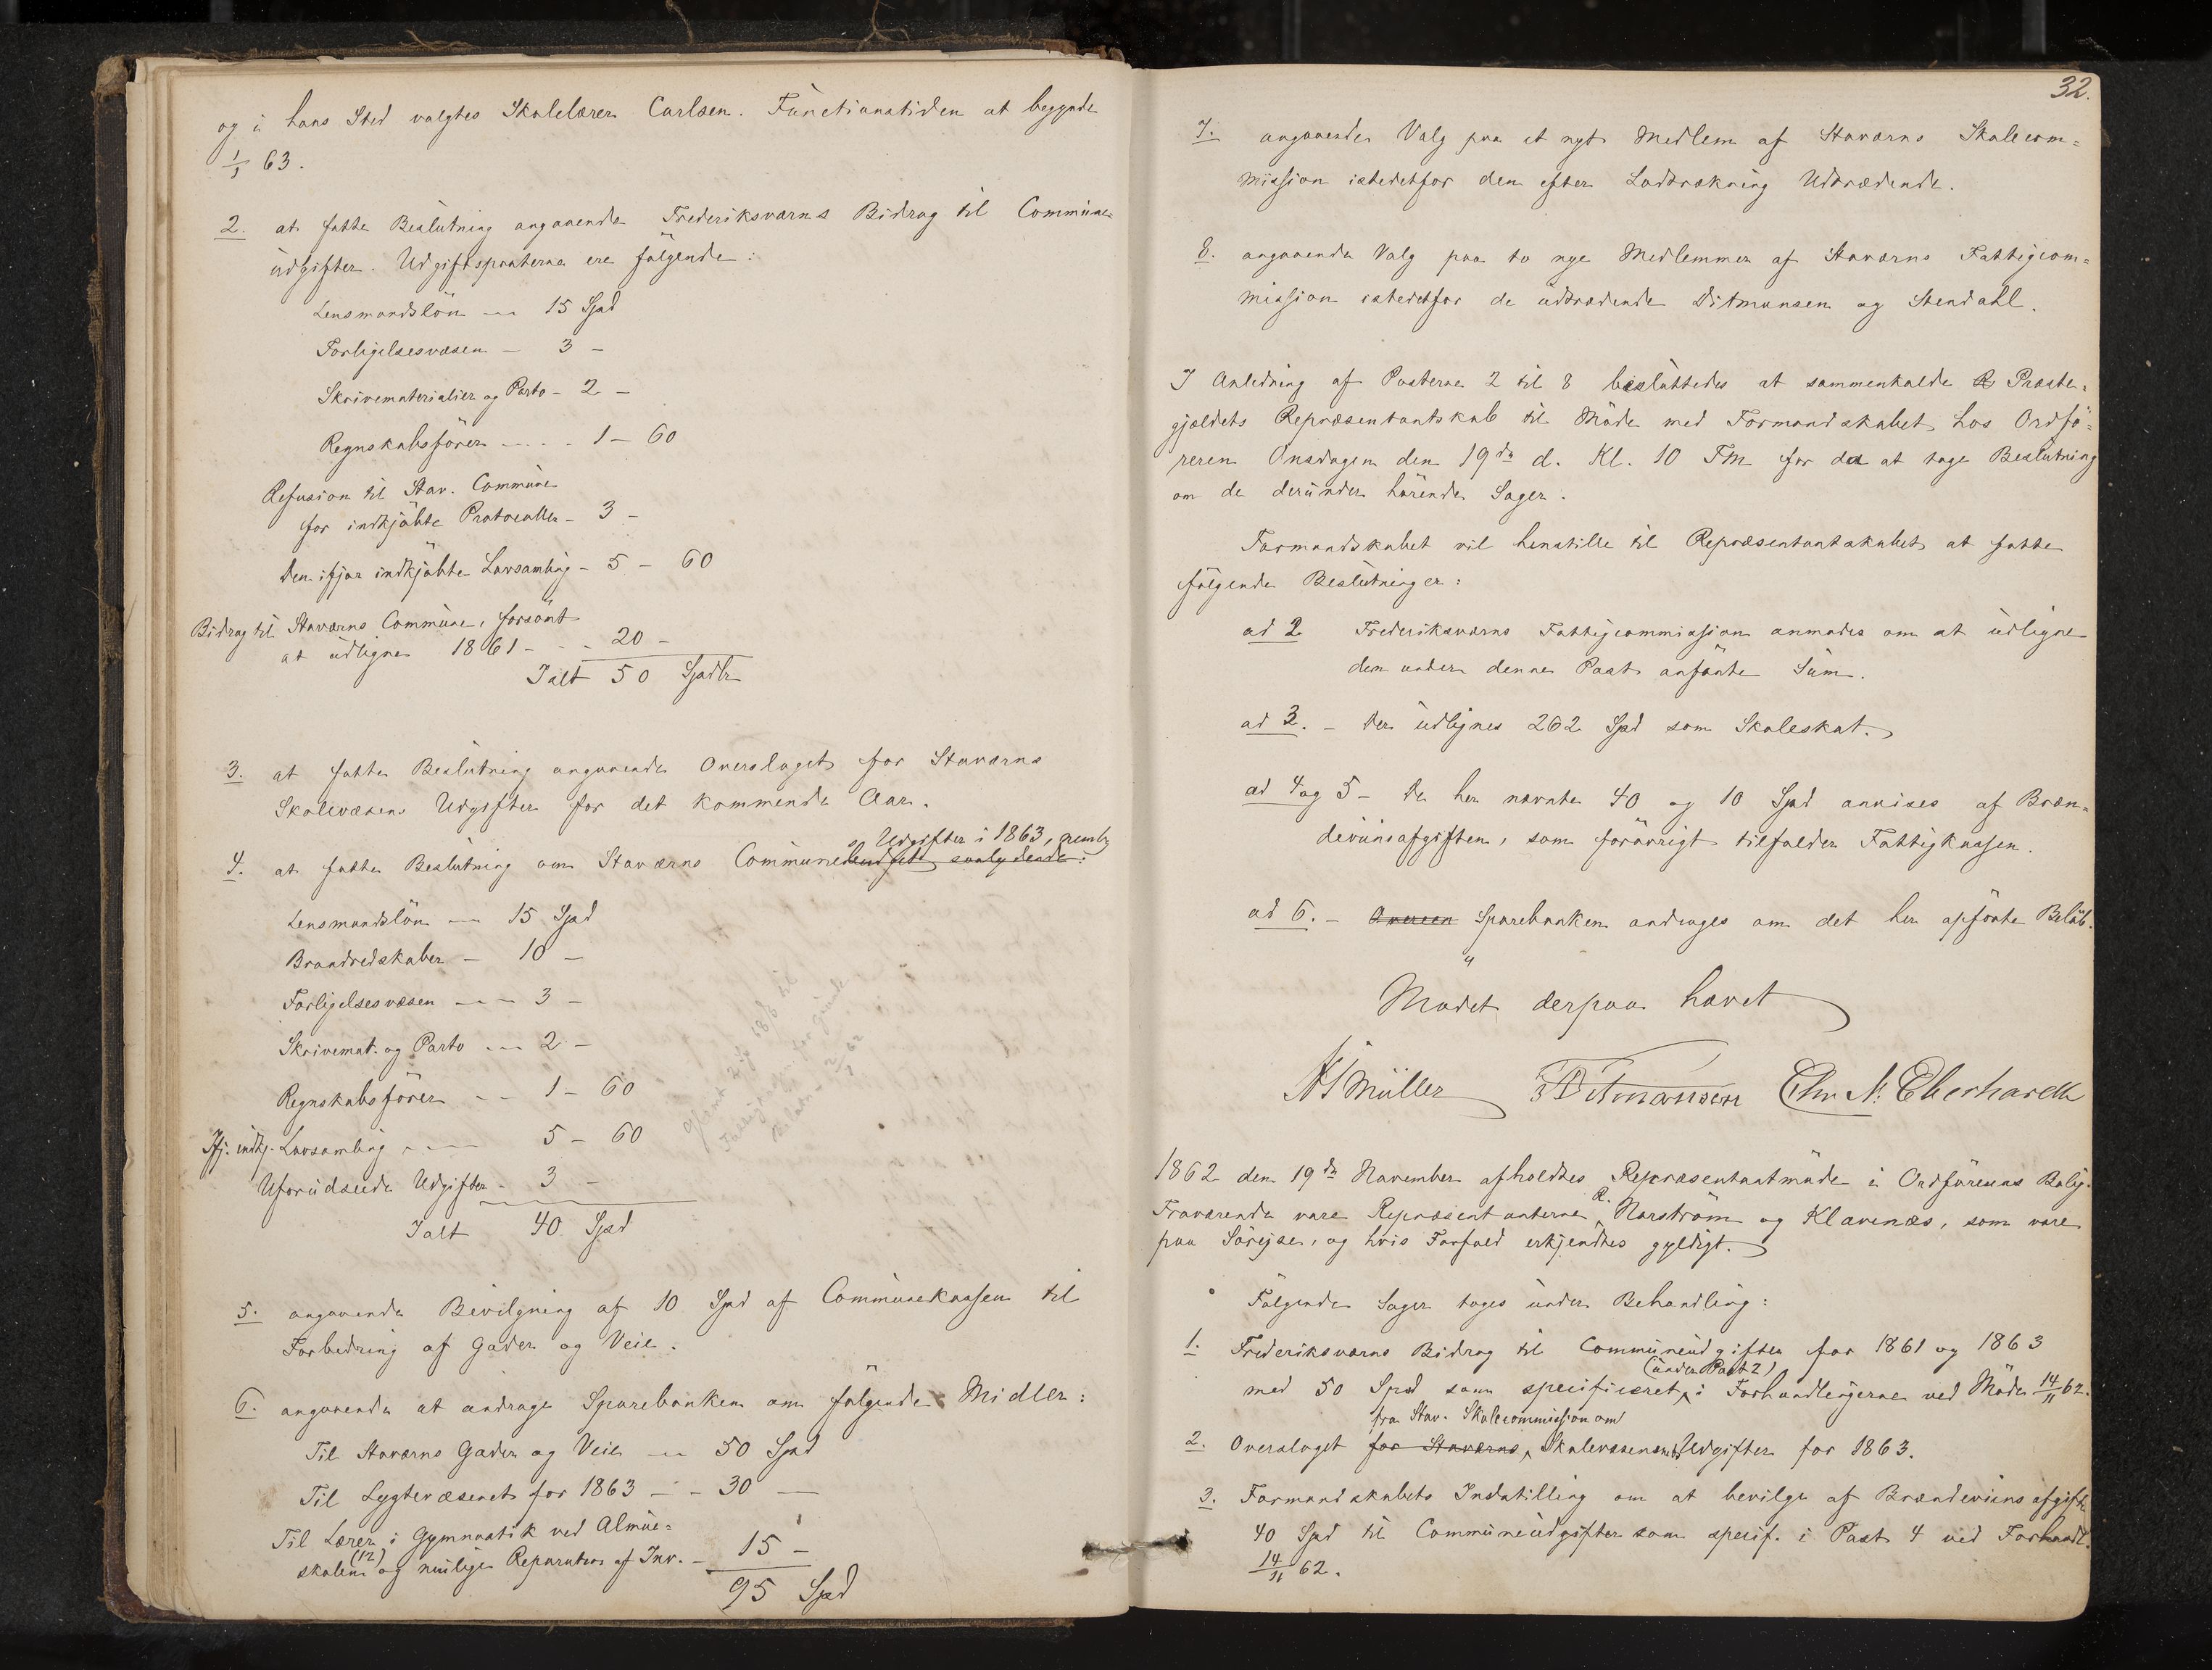 og i hans Sted valgtes Skolelærer Carlsen. Functionstiden at begynde
1/1 63.
2. at fatte Beslutning angaaende Frederiksværns Bidrag til Commune-
udgifter. Udgiftsposterne ere følgende:
Lensmandslön — 15 Spd
Forligelsesvæsen — 3 —
Skrivematerialier og Porto — 2 —
Regnskabsförer - - - 1 — 60
Refusion til Stav. Commune
for indkjöbte Protocoller — 3 —
Den ifjor indkjöbte Lovsamling — 5 — 60
Bidrag til Staværns Commune, forsömt
at udligne 1861 - - - 20 —
Ialt 50 Spdlr
3. at fatte Beslutning angaaende Overslaget for Staværns
Skolevæsens Udgifter for det kommende Aar.
s Udgifter i 1863, nemlig
4. at fatte Beslutning om Staværns Commune
Lensmandslön — 15 Spd
Brandredskaber — 10 —
Forligelsesvæsen — 3 —
Skrivemat. og Porto — 2 —
Regnskabsförer - - 1 — 60
Ifj. indkj. Lovsamling — 5 — 60
Uforudseede Udgifter — 3 —
Ialt 40 Spd
5. angaaende Bevilgning af 10 Spd af Communekassen til
Forbedring af Gader og Veie.
6. angaaende at andrage Sparebanken om følgende Midler:
Til Staværns Gader og Veie — 50 Spd
Til Lygtevæsenet for 1863 — 30 —
Til Lærer i Gymnastik ved Almue-
skolen (12) og mulige Reparation af Inv. — 15 —
95 Spd
32.
7. angaaende Valg paa et nyt Medlem af Staværns Skolecom-
mission istedetfor den efter Lodtrækning Udtrædende.
8. angaaende Valg paa to nye Medlemmer af Staværns Fattigcom-
mission istedetfor de udtrædende Ditmansen og Stendahl.
I Anledning af Posterne 2 til 8 besluttedes at sammenkalde Præste-
gjældets Repræsentantskab til Möde med Formandskabet hos Ordfö-
reren Onsdagen den 19de d. Kl. 10 Fm for da at tage Beslutning
om de derunder hörende Sager.
Formandskabet vil henstille til Repræsentantskabet at fatte
følgende Beslutninger:
ad 2 Frederiksværns Fattigcommission anmodes om at udligne
den under denne Post anförte Sum.
ad 3. — Der udlignes 262 Spd som Skoleskat.
ad 4 og 5 — De her nævnte 40 og 10 Spd anvises af Bræn-
deviinsafgiften, som forövrigt tilfalder Fattigkassen.
ad 6. — Sparebanken andrages om det her opförte Belöb.
Mödet derpaa hævet
Müller Ditmansen Chr. N. Eberhardt
1862 den 19de November afholdtes Repræsentantmöde i Ordförerens Bolig.
Fraværende vare Repræsentanterne R. Norström og Klavenæs, som vare
paa Söreise, og hvis Forfald erkjendtes gyldigt.
Følgende Sager toges under Behandling:
1. Frederiksværns Bidrag til Communeudgifter for 1861 og 1863
(under Post 2)
med 50 Spd som specificeret i Forhandlingerne ved Möde 14/11 62.
fra Stav. Skolecommission om
2. Overslaget for Staværns Skolevæsens Udgifter for 1863.
3. Formandskabets Indstilling om at bevilge af Brændeviinsafgiften
40 Spd til Communeudgifter som specif. i Post 4 ved Forhandl.
14/11 62.